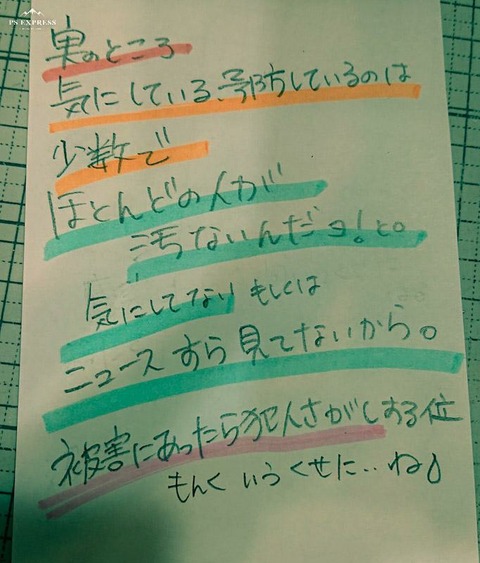 PS EXPRESS
実のところ
気にしている、予防しているのは
少数で
ほとんどの人が
汚ないんだヨ!と。
気にしてない もしくは
ニュースすら見てないから。
被害にあったら犯人さがしする位
もんくいうくせに‥ね